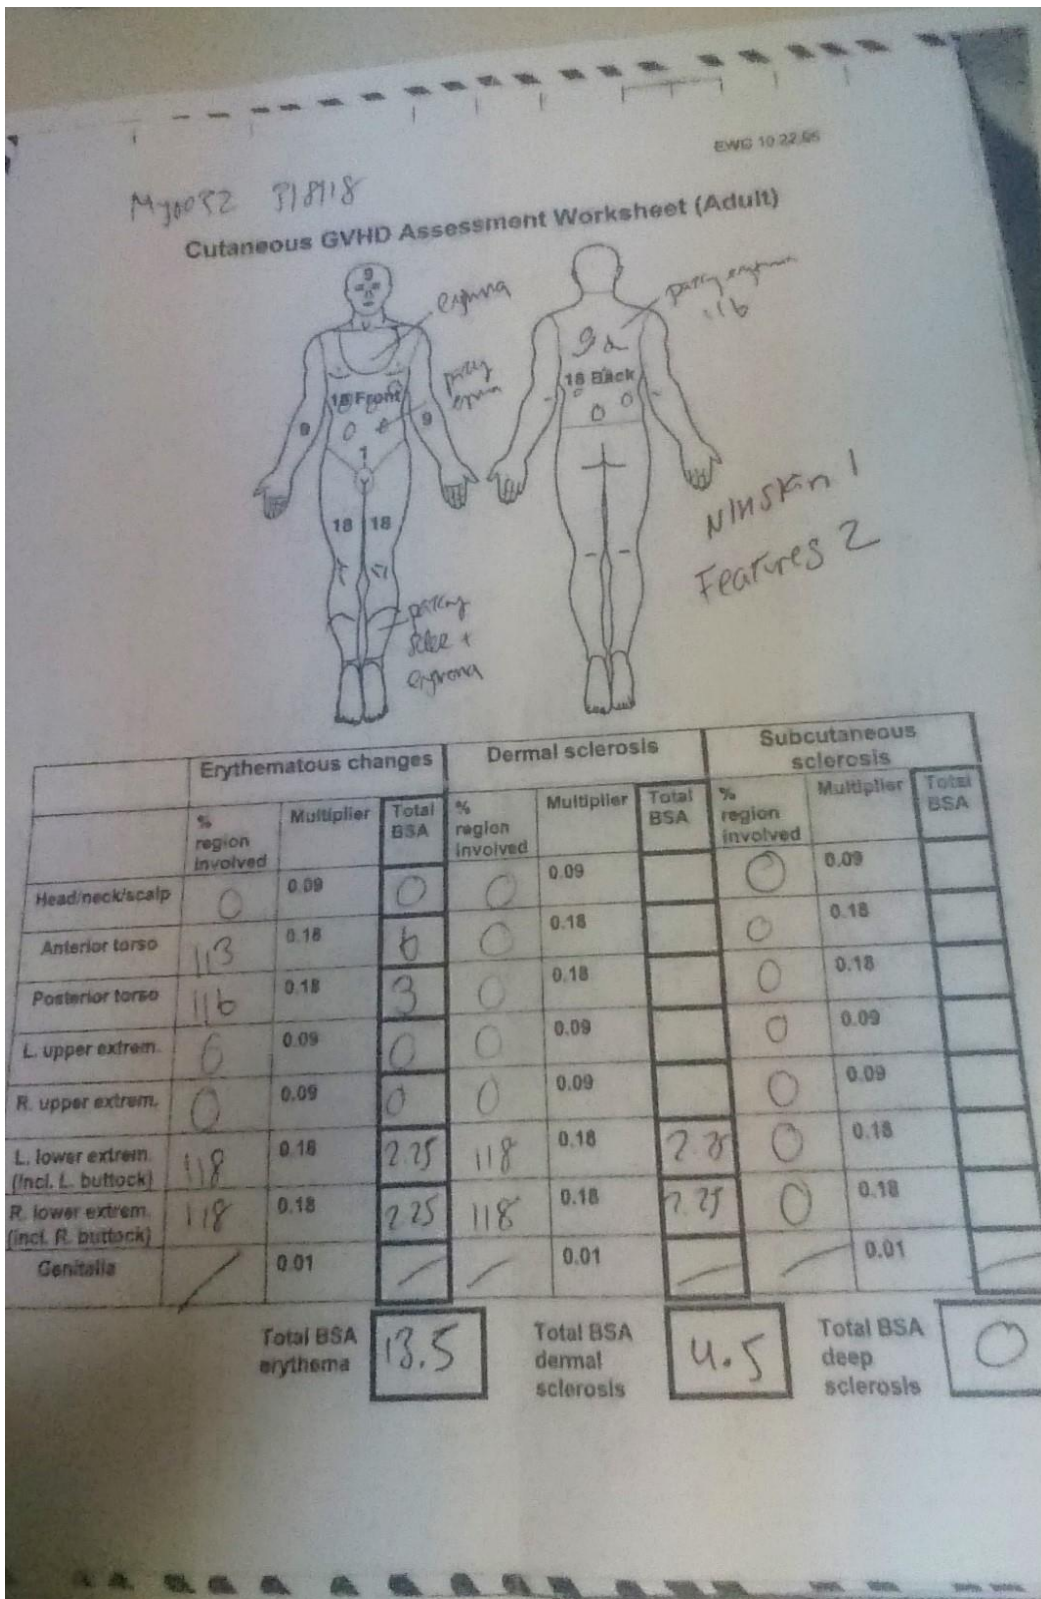 EWG 10 22.06
3/8/18
Cutaneous GVHD Assessment Worksheet (Adult)
9
18 Front
9
9
1
18 18
18 Back
patchy
+
NIH Skin 1
Features 2
Erythematous changes Dermal sclerosis Subcutaneous sclerosis
% region involved Multiplier Total BSA % region involved Multiplier Total BSA % region involved Multiplier Total BSA
Head/neck/scalp 0 0.09 0 0 0.09 0 0.09
Anterior torso 1/3 0.18 6 0 0.18 0 0.18
Posterior torso 1/6 0.18 3 0 0.18 0 0.18
L. upper extrem. 0 0.09 0 0 0.09 0 0.09
R. upper extrem. 0 0.09 0 0 0.09 0 0.09
L. lower extrem. (incl. L. buttock) 1/8 0.18 2.25 1/8 0.18 2.25 0 0.18
R. lower extrem. (incl. R. buttock) 1/8 0.18 2.25 1/8 0.18 2.25 0 0.18
Genitalia 0.01 0.01 0.01
Total BSA erythema 13.5 Total BSA dermal sclerosis 4.5 Total BSA deep sclerosis 0